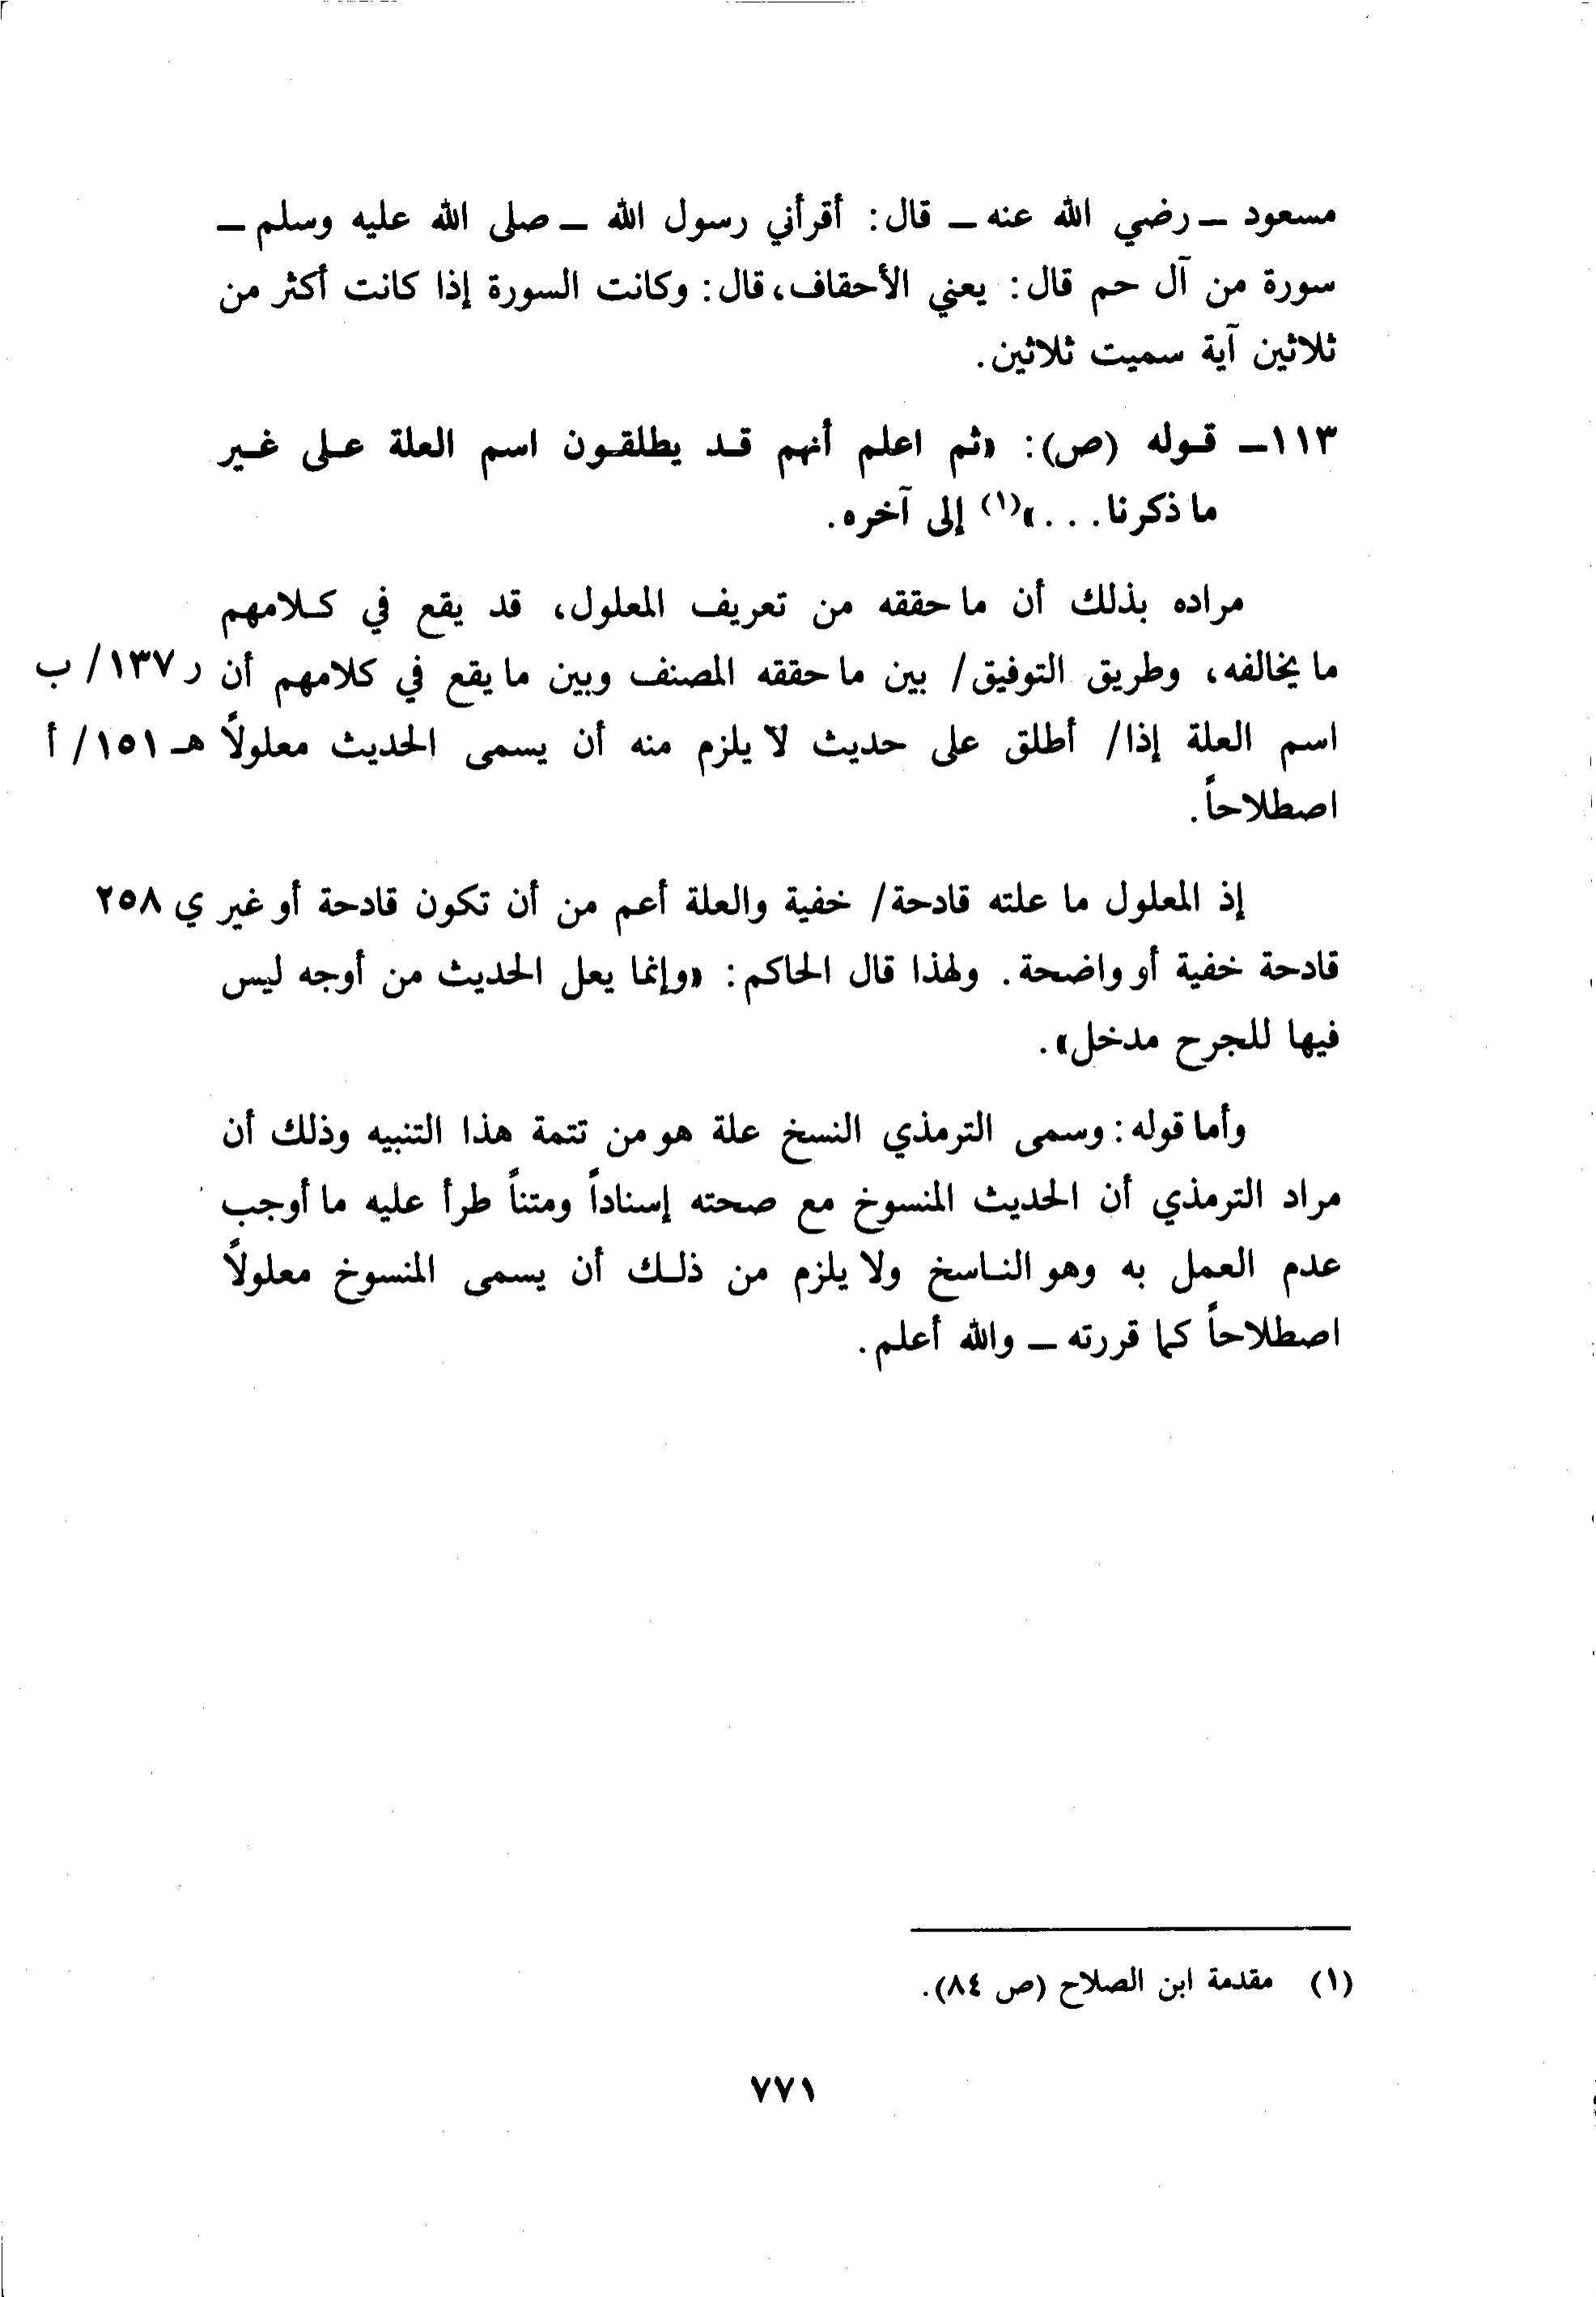 مسعود – رضي الله عنه – قال: أقرأني رسول الله – صلى الله عليه وسلم –
سورة من آل حم قال: يعني الأحقاف، قال: وكانت السورة إذا كانت أكثر من
ثلاثين آية سميت ثلاثين.
١١٣– قوله (ص): «ثم اعلم أنهم قد يطلقون اسم العلة على غير
ما ذكرنا...»(١) إلى آخره.
مراده بذلك أن ما حققه من تعريف المعلول، قد يقع في كلامهم
ما يخالفه، وطريق التوفيق/ بين ما حققه المصنف وبين ما يقع في كلامهم أن ر ١٣٧/ ب
اسم العلة إذا/ أطلق على حديث لا يلزم منه أن يسمى الحديث معلولاً هـ ١٥١/ أ
اصطلاحاً.
إذ المعلول ما علته قادحة/ خفية والعلة أعم من أن تكون قادحة أو غير ي ٢٥٨
قادحة خفية أو واضحة. ولهذا قال الحاكم: «وإنما يعل الحديث من أوجه ليس
فيها للجرح مدخل».
وأما قوله: وسمى الترمذي النسخ علة هو من تتمة هذا التنبيه وذلك أن
مراد الترمذي أن الحديث المنسوخ مع صحته إسناداً ومتناً طرأ عليه ما أوجب
عدم العمل به وهو الناسخ ولا يلزم من ذلك أن يسمى المنسوخ معلولاً
اصطلاحاً كما قررته – والله أعلم.
(١) مقدمة ابن الصلاح (ص ٨٤).
٧٧١